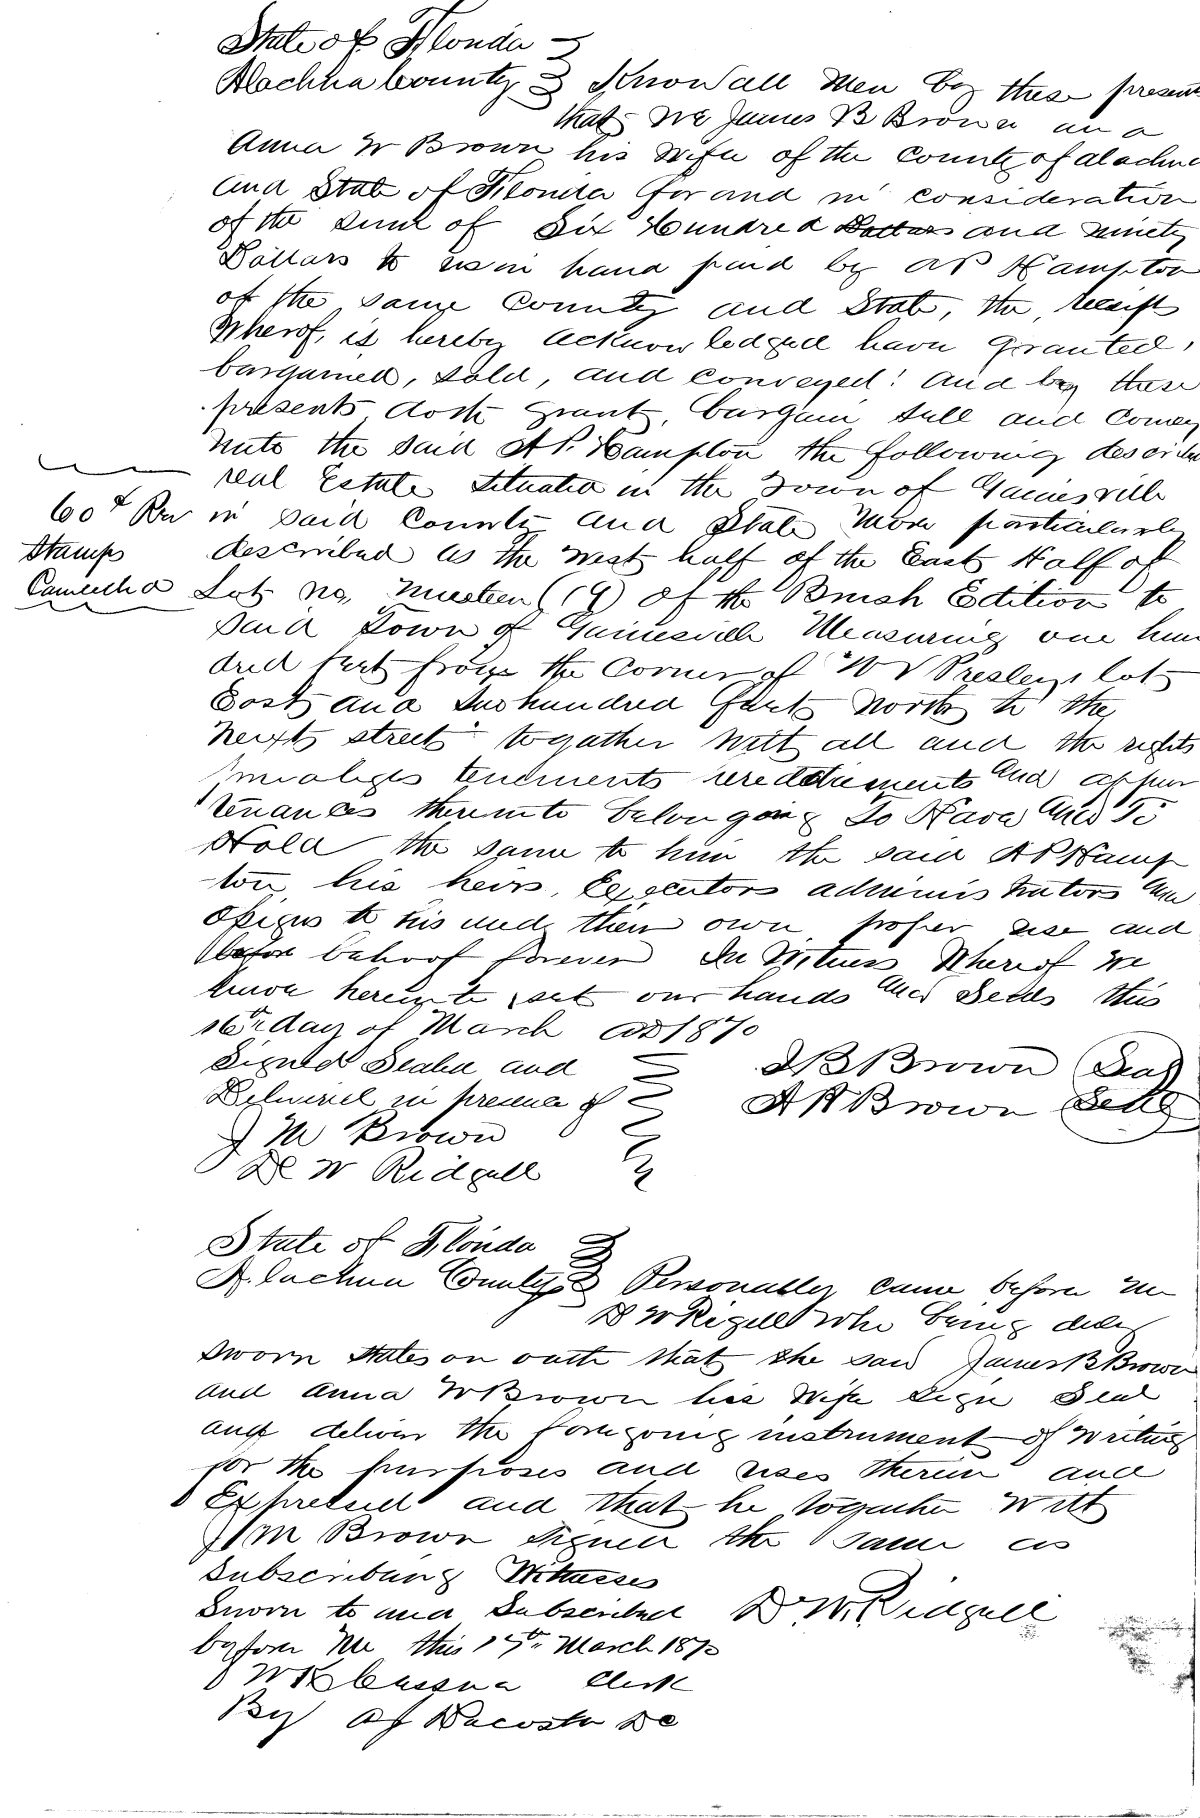 State of Florida
Alachua County Know all Men by these present
that we James B Brown and
Anna W Brown his wife of the County of alachua
and State of Florida for and in consideration
of the sum of Six Hundred Dollars and ninety
Dollars to us in hand paid by A P Hampton
of the same County and State, the receipt
Wherof, is hereby acknowledged have granted,
bargained, sold, and conveyed! and by these
presents doth grant, bargain sell and convey
unto the said A P. Hampton the following describe
real Estate situated in the Town of Gainesville
60 ct Rev in said County and State more particularly
Stamps described as the west half of the East Half of
Cancelled Lot no, nineteen (19) of the Brush Edition to
said Town of Gainesville Measuring one hun
dred feet from the Corner of W V Presleys lot
East and two hundred feet North to the
next street together with all and the rights
tenements and appur
tenances thereunto belonging To Have and To
Hold the same to him the said A P Hamp
ton his heirs, Executors administrators and
assigns to his and their own proper use and
before behoof forever In Witness Whereof we
have hereunto set our hands and Seals this
16th day of March AD 1870
Signed Sealed and J B Brown Seal
Delivered in presence of A W Brown Seal
J M Brown
D W Ridgell
State of Florida
Alachua County Personally came before me
D W Rigell who being duly
sworn states on oath that she saw James B Brown
and Anna W Brown his wife sign Seal
and deliver the foregoing instrument of writing
for the purposes and uses therein and
Expressed and that he together with
J M Brown signed the same as
subscribing Witnesses
Sworn to and Subscribed D. W. Ridgell
before me this 17th March 1870
W K Cessna Clerk
By A J Dacosta DC